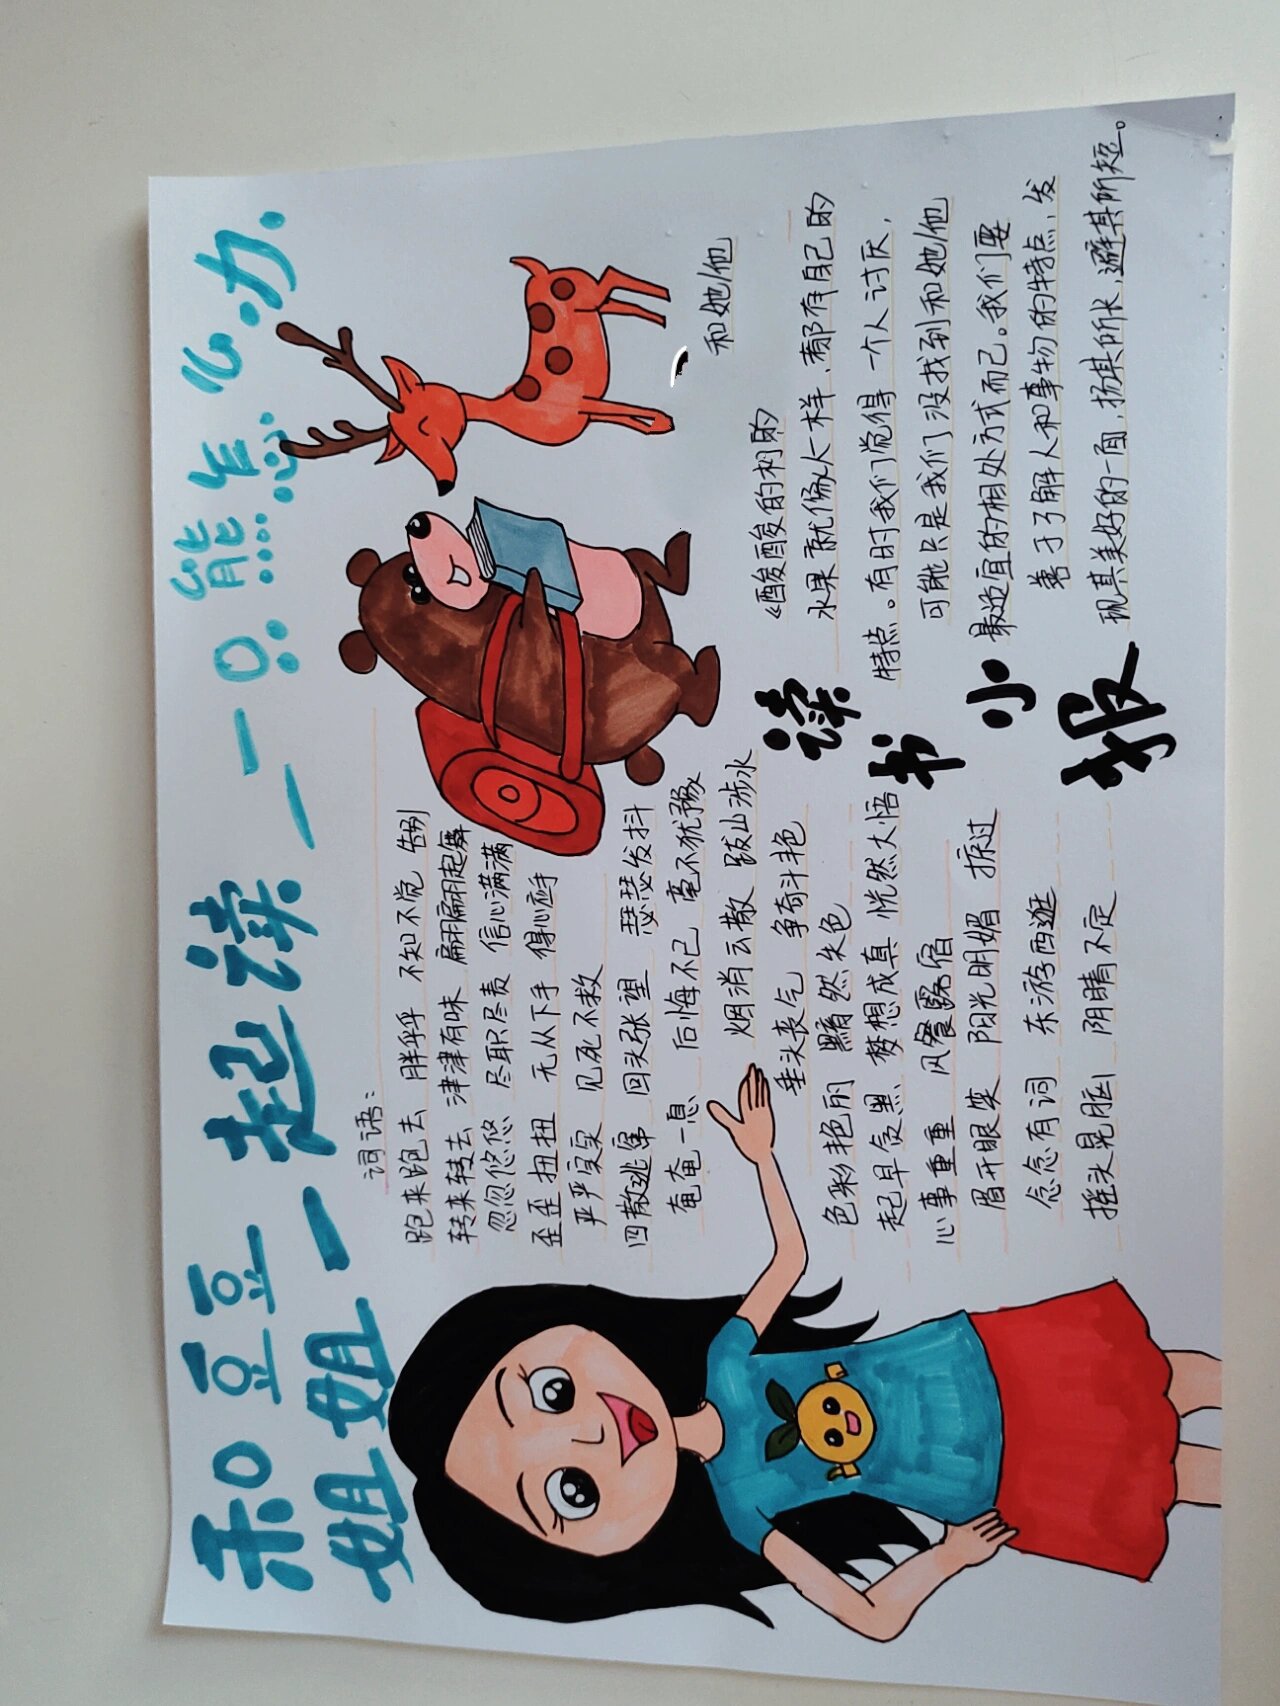 和豆豆一起读一只熊怎么办
姐姐一
词语:
跑来跑去 胖乎乎 不知不觉 告别
转来转去 津津有味 翩翩起舞
忽忽悠悠 尽职尽责 信心满满
歪歪扭扭 无从下手 得心应手
严严实实 见死不救
四散逃窜 回头张望 瑟瑟发抖
奄奄一息 后悔不已 毫不犹豫
烟消云散 跋山涉水
垂头丧气 争奇斗艳
色彩艳丽 黯然失色
起早贪黑 梦想成真 恍然大悟
心事重重 风餐露宿
眉开眼笑 阳光明媚
念念有词 东游西逛
摇头晃脑 阴晴不定
读书小报
和她/他
《酸酸的树的
水果就像人一样,都有自己的
特点。有时我们觉得一个人讨厌,
可能只是我们没找到和她/他
最适宜的相处方式而已。我们要
善于了解人和事物的特点、发
现其美好的一面,扬其所长,避其所短。